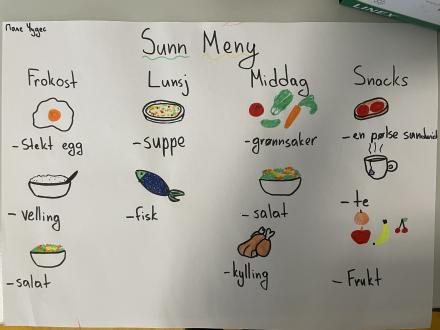 Sunn Meny
Frokost
- Stekt egg
- velling
- salat
Lunsj
- suppe
- fisk
Middag
- grønnsaker
- salat
- kylling
Snacks
- en pølse
- te
- Frukt
LINEX